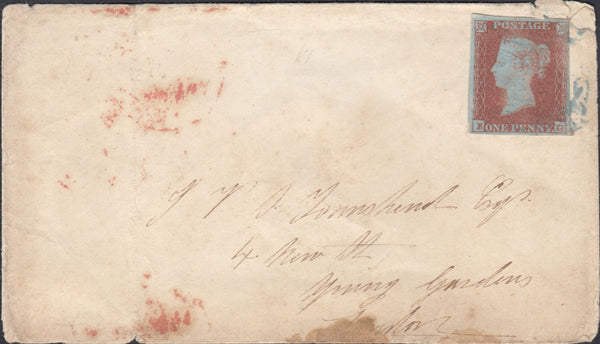 POSTAGE
ONE PENNY
Townshend Esq.
4 New St
Gardens
London